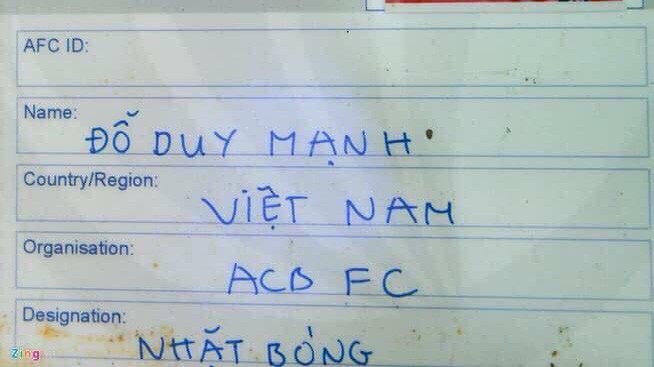 AFC ID:
Name:
ĐỖ DUY MẠNH
Country/Region:
VIỆT NAM
Organisation:
ACB FC
Designation:
NHẶT BÓNG
Zing